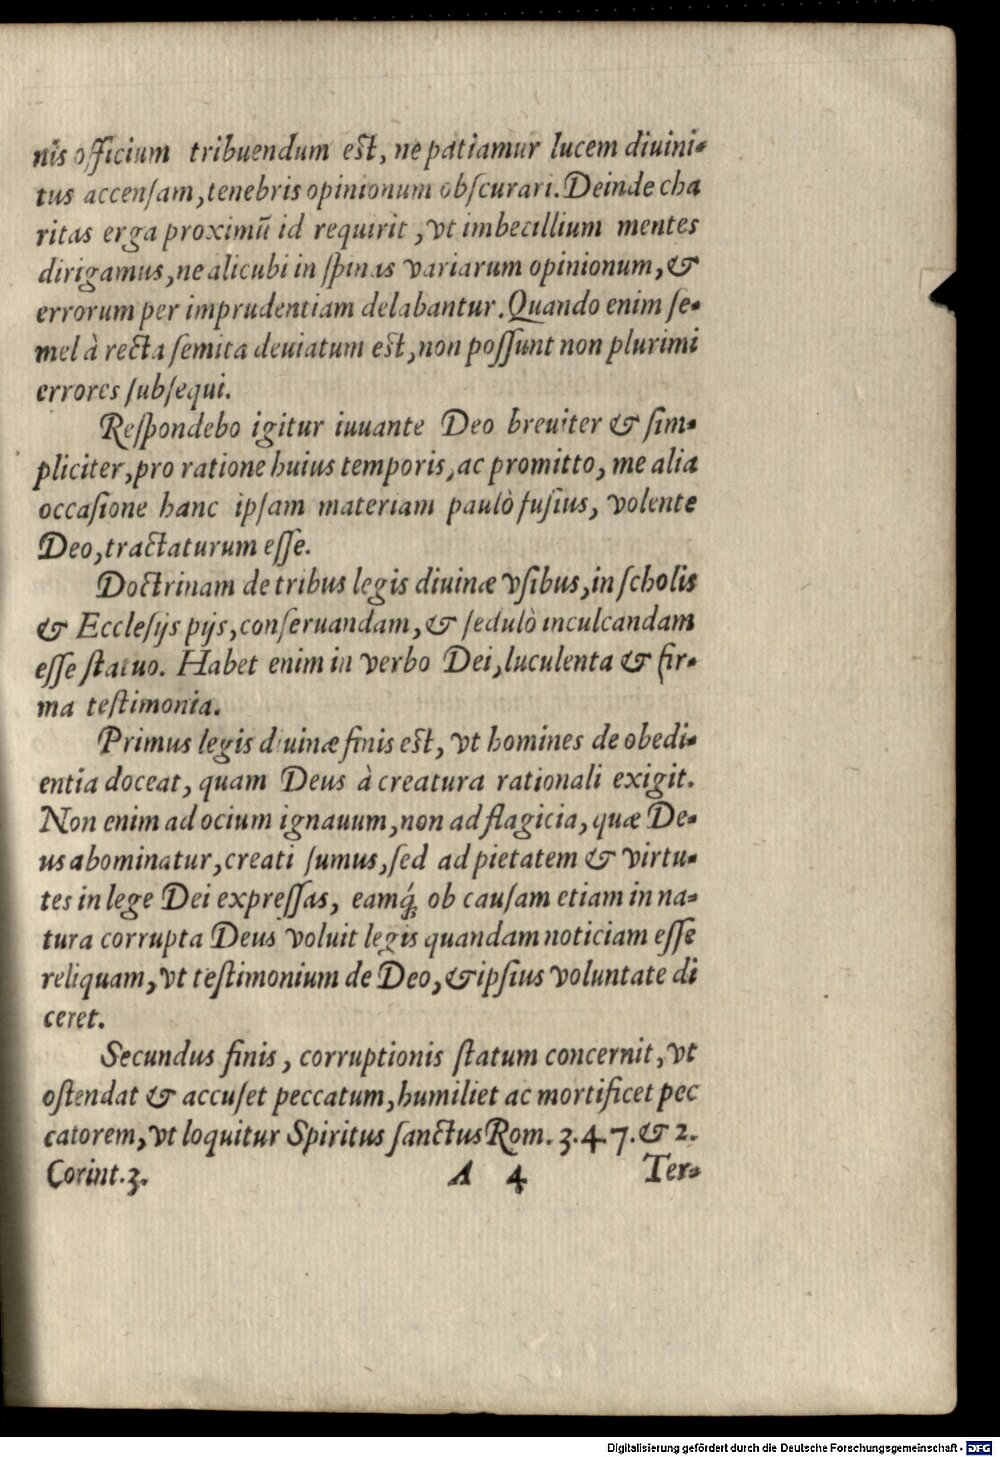 nis officium tribuendum est, ne patiamur lucem diuini-
tus accensam, tenebris opinionum obscurari. Deinde cha
ritas erga proximũ id requirit, vt imbecillium mentes
dirigamus, ne alicubi in spinas variarum opinionum, &
errorum per imprudentiam delabantur. Quando enim se-
mel à recta semita deuiatum est, non possunt non plurimi
errores subsequi.
Respondebo igitur iuuante Deo breuiter & sim-
pliciter, pro ratione huius temporis, ac promitto, me alia
occasione hanc ipsam materiam paulò fusius, volente
Deo, tractaturum esse.
Doctrinam de tribus legis diuinæ vsibus, in scholis
& Ecclesijs pijs, conseruandam, & sedulò inculcandam
esse statuo. Habet enim in verbo Dei, luculenta & fir-
ma testimonia.
Primus legis diuinæ finis est, vt homines de obedi-
entia doceat, quam Deus à creatura rationali exigit.
Non enim ad ocium ignauum, non ad flagicia, quæ De-
us abominatur, creati sumus, sed ad pietatem & virtu-
tes in lege Dei expressas, eamq́; ob causam etiam in na-
tura corrupta Deus voluit legis quandam noticiam esse
reliquam, vt testimonium de Deo, & ipsius voluntate di
ceret.
Secundus finis, corruptionis statum concernit, vt
ostendat & accuset peccatum, humiliet ac mortificet pec
catorem, vt loquitur Spiritus sanctus Rom. 3. 4. 7. & 2.
Corint. 3. A 4 Ter-
Digitalisierung gefördert durch die Deutsche Forschungsgemeinschaft - DFG